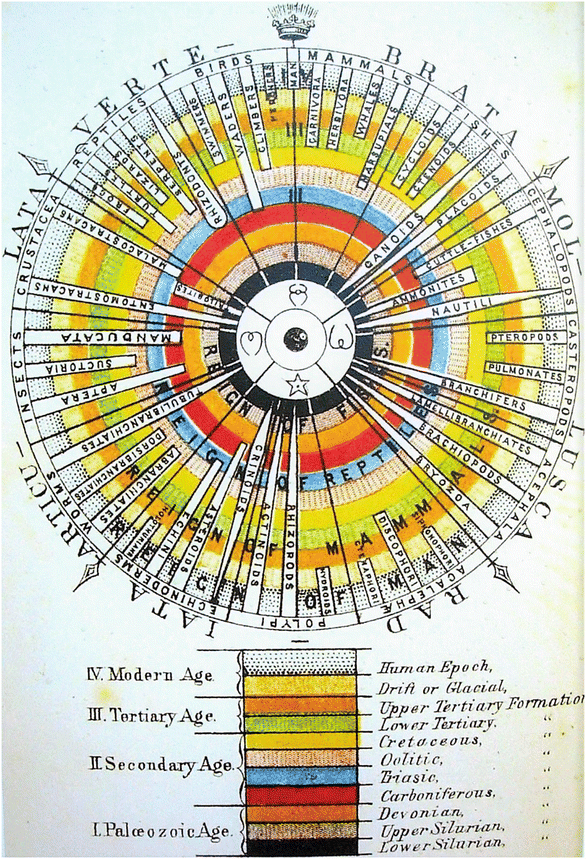 VERTE-
BRATA
MOL-
LUSCA
RAD
IATA
ARTICU-
LATA
BIRDS
MAMMALS
FISHES
CEPHALOPODS
GASTEROPODS
ACEPHALA
ACALEPHÆ
POLYPI
ECHINODERMS
WORMS
INSECTS
CRUSTACEA
REPTILES
SWIMMERS
WADERS
CLIMBERS
PERCHERS
MAN
CARNIVORA
HERBIVORA
WHALES
MARSUPIALS
CYCLOIDS
CTENOIDS
PLACOIDS
GANOIDS
CUTTLE-FISHES
AMMONITES
NAUTILI
PTEROPODS
PULMONATES
BRANCHIFERS
LAMELLIBRANCHIATES
BRACHIOPODS
BRYOZOA
DISCOPHORI
HYDROIDS
RHIZOPODS
ACTINOIDS
CRINOIDS
ASTEROIDS
DORSIBRANCHIATES
TUBULIBRANCHIATES
APTERA
SUCTORIA
MANDUCATA
ENTOMOSTRACANS
MALACOSTRACANS
TRILOBITES
RHIZODONTS
III
II
REIGN OF FISHES
REIGN OF REPTILES
REIGN OF MAMMALS
REIGN OF MAN
IV. Modern Age.
III. Tertiary Age.
II. Secondary Age.
I. Palœozoic Age.
Human Epoch,
Drift or Glacial,
Upper Tertiary Formation
Lower Tertiary. "
Cretaceous, "
Oolitic, "
Triasic, "
Carboniferous, "
Devonian, "
Upper Silurian, "
Lower Silurian, "